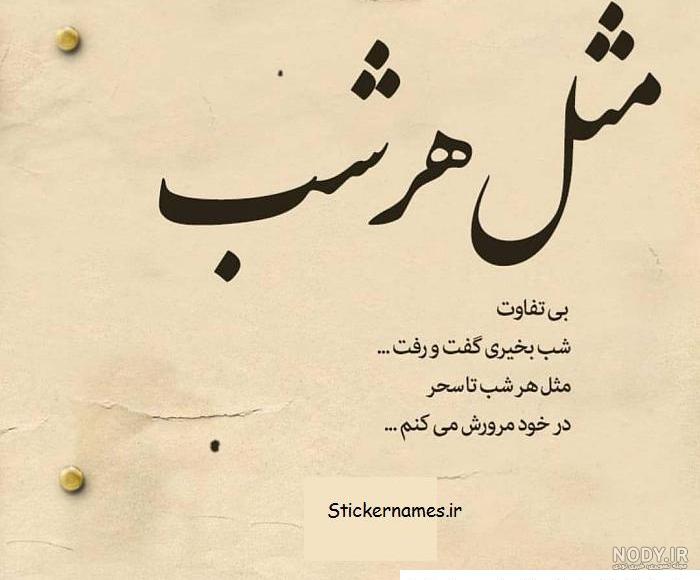 مثل هر شب
بی تفاوت
شب بخیری گفت و رفت ...
مثل هر شب تا سحر
در خود مرورش می کنم ...
Stickernames.ir
NODY.IR